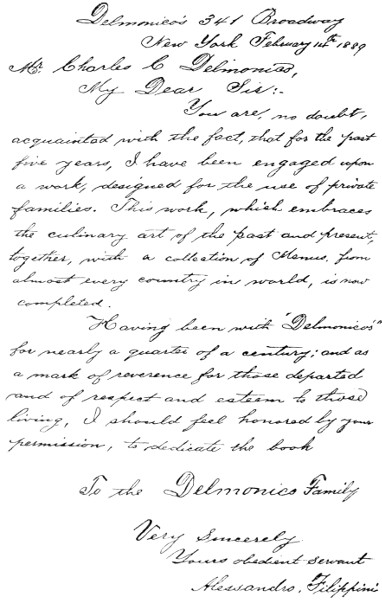 Delmonico's 341 Broadway
New York February 14th 1889
Mr. Charles C Delmonico,
My Dear Sir:-
You are, no doubt,
acquainted with the fact, that for the past
five years, I have been engaged upon
a work, designed for the use of private
families. This work, which embraces
the culinary art of the past and present,
together, with a collection of Menus, from
almost every country in world, is now
completed.
Having been with "Delmonico's"
for nearly a quarter of a century; and as
a mark of reverence for those departed
and of respect and esteem to those
living, I should feel honored by your
permission, to dedicate the book
To the Delmonico Family
Very Sincerely
Yours obedient servant
Alessandro, Filippini